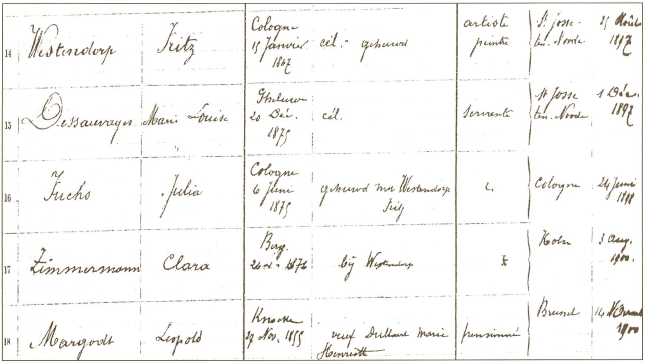 14 Westendorp Fritz Cologne 15 Janvier 1867 cél. - gehuwd artiste peintre St Josse ten Noode 15 Août 1897
15 Dessauvages Marie Louise 20 Déc. 1875 cél. servante St Josse ten Noode 1 Déc. 1897
16 Fuchs Julia Cologne 6 Juni 1875 gehuwd met Westendorp Fritz Cologne 24 Juni
17 Zimmermann Clara bij Westendorp Koln 3 Aug. 1900.
18 Margodt Leopold Knocke 29 Nov. 1855 veuf Marie Henriette pensionné Brussel 14 1900